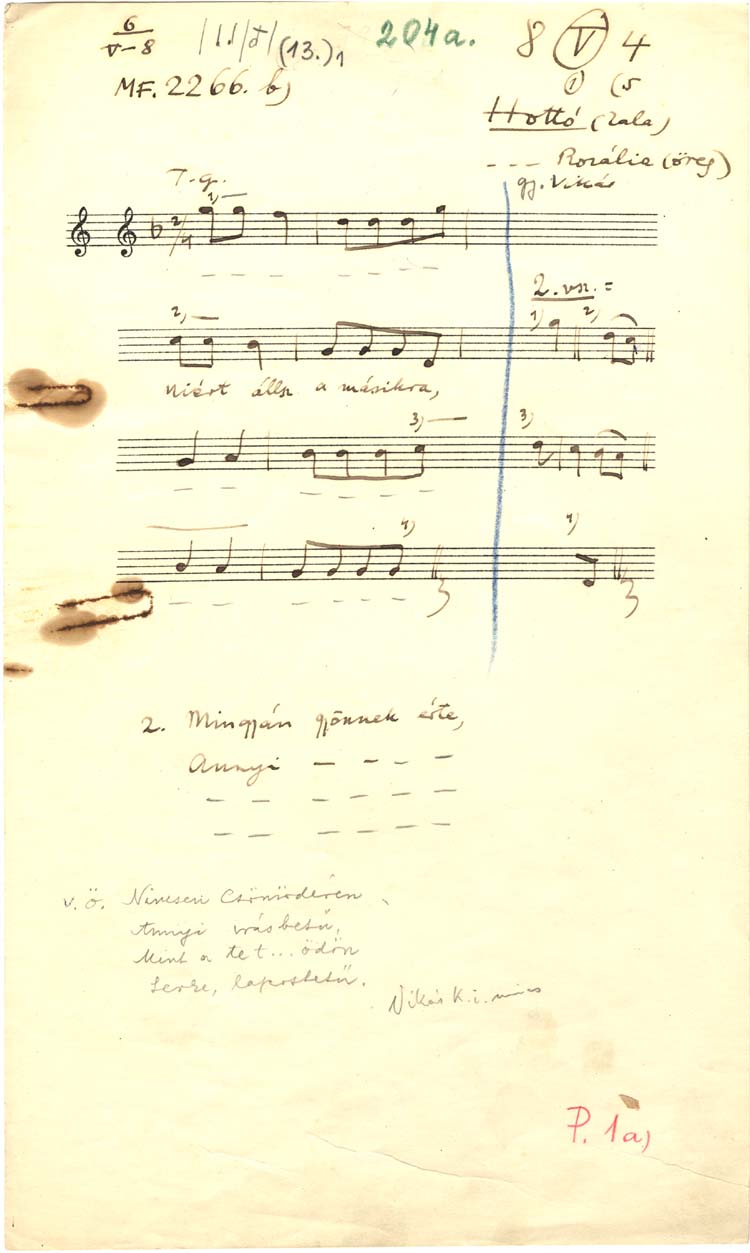 6
V-8
(13.)1
204a.
8 V 4
1) (5
MF. 2266. b)
Hottó (Zala)
--- Rozália (öreg)
gy. Vikár
T. g.
1)
2/4
2. vsz. =
2) 1) 2)
miért állsz a másikra,
3) 3)
4) 4)
2. Mingyán gyönnek érte,
Annyi - - - -
v. ö. Nincsen Csömödéren
Annyi írásbetü,
Mint a te t... ödön
Serke, lapostetü.
Vikár K. i. nincs
P. 1a)